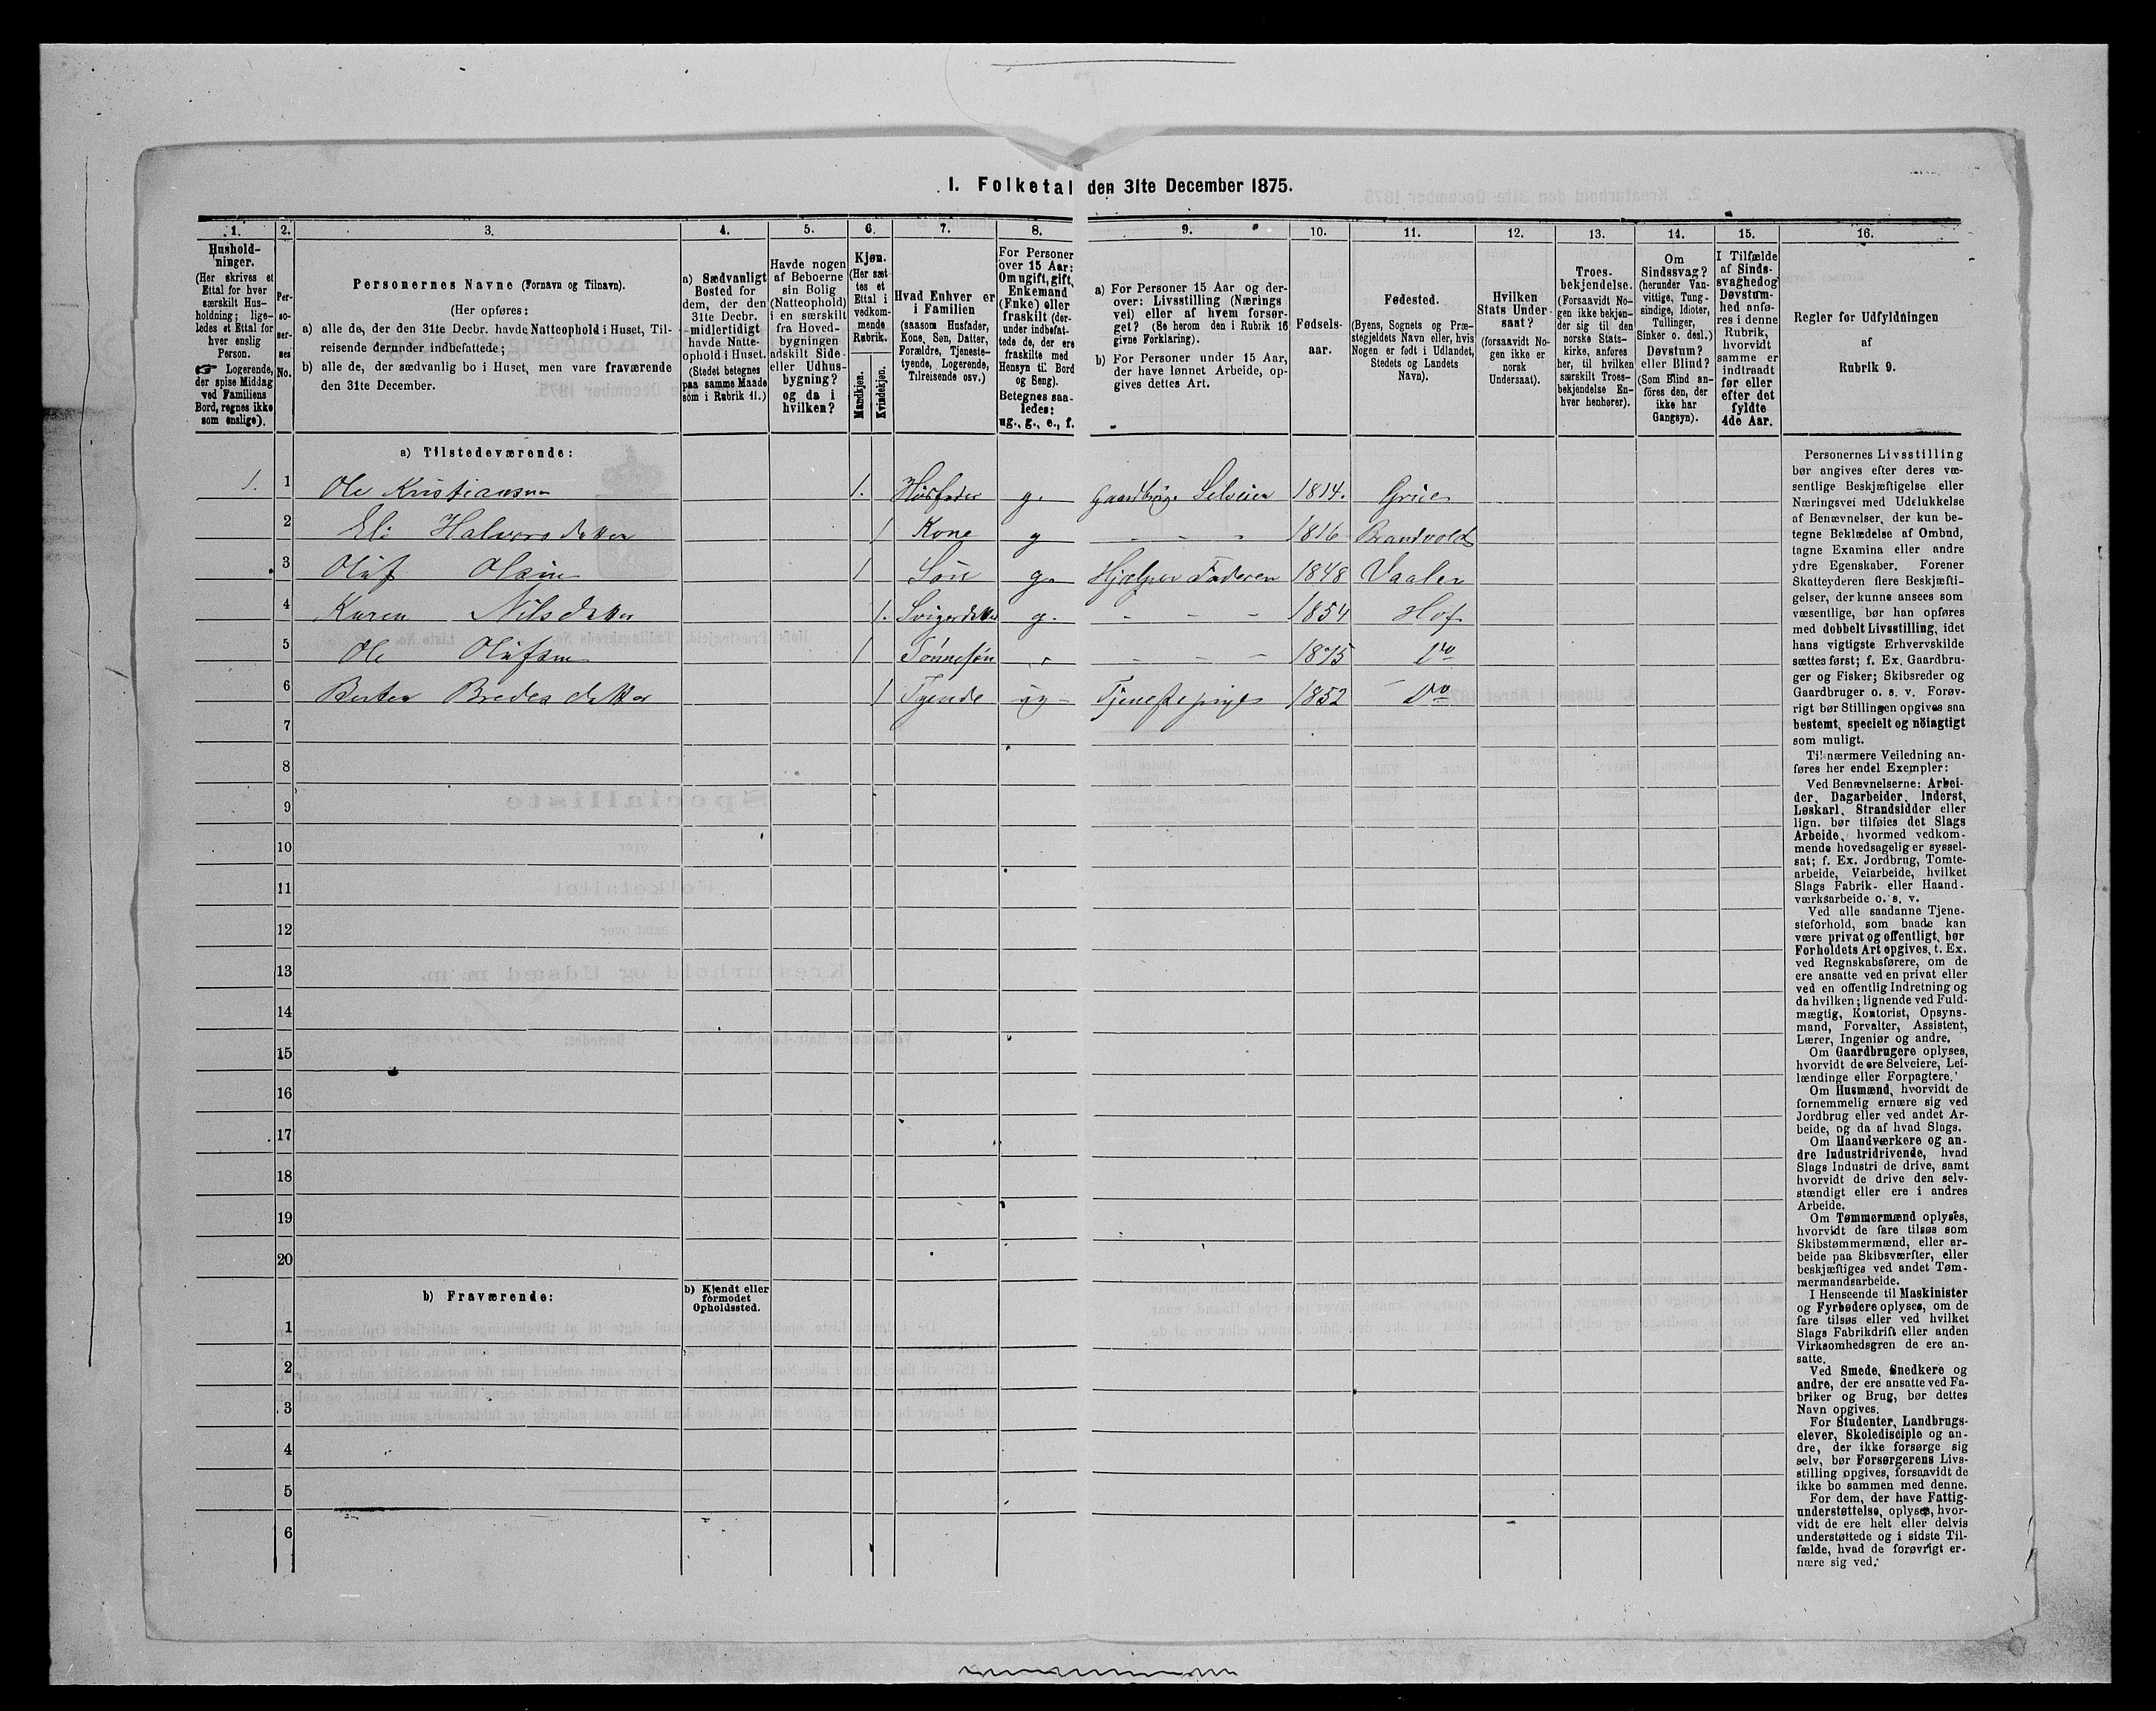 1. Folketal den 31te December 1875.
1.
Hushold-
ninger.
(Her skrives et
Ettal for hver
særskilt Hus-
holdning; lige-
ledes et Ettal for
hver enslig
Person.
☞ Logerende,
der spise Middag
ved Familiens
Bord, regnes ikke
som enslige).
2.
Per-
so-
ner-
nes
No.
3.
Personernes Navne (Fornavn og Tilnavn).
(Her opføres:
a) alle de, der den 31te Decbr. havde Natteophold i Huset, Til-
reisende derunder indbefattede;
b) alle de, der sædvanlig bo i Huset, men vare fraværende
den 31te December.
4.
a) Sædvanligt
Bosted for
dem, der den
31te Decbr.
midlertidigt
havde Natte-
ophold i Huset.
(Stedet betegnes
paa samme Maade
som i Rubrik 11.)
5.
Havde nogen
af Beboerne
sin Bolig
(Natteophold)
i en særskilt
fra Hoved-
bygningen
adskilt Side-
eller Udhus-
bygning?
og da i
hvilken?
6.
Kjøn.
(Her sæt-
tes et
Ettal i
vedkom-
mende
Rubrik.
Mandkjøn.
Kvindekjøn.
7.
Hvad Enhver er
i Familien
(saasom Husfader,
Kone, Søn, Datter,
Forældre, Tjeneste-
tyende, Logerende,
Tilreisende osv.)
8.
For Personer
over 15 Aar:
Om ugift, gift,
Enkemand
(Enke) eller
fraskilt (der-
under indbefat-
tede de, der ere
fraskilte med
Hensyn til Bord
og Seng).
Betegnes saa-
ledes:
ug., g., e., f.
9.
a) For Personer 15 Aar og der-
over: Livsstilling (Nærings
vei) eller af hvem forsør-
get? (Se herom den i Rubrik 16
givne Forklaring).
b) For Personer under 15 Aar,
der have lønnet Arbeide, op-
gives dettes Art.
10.
Fødsels-
aar.
11.
Fødested.
(Byens, Sognets og Præ-
stegjeldets Navn eller, hvis
Nogen er født i Udlandet,
Stedets og Landets
Navn).
12.
Hvilken
Stats Under
saat?
(forsaavidt No-
gen ikke er
norsk
Undersaat).
13.
Troes-
bekjendelse.
(Forsaavidt No-
gen ikke bekjen-
der sig til den
norske Stats-
kirke, anføres
her, til hvilken
særskilt Troes-
bekjendelse En-
hver henhører).
14.
Om
Sindssvag?
(herunder Van-
vittige, Tung-
sindige, Idioter,
Tullinger,
Sinker o. desl.)
Døvstum?
eller Blind?
(Som Blind an-
føres den, der
ikke har
Gangsyn).
15.
I Tilfælde
af Sinds-
svaghed og
Døvstum-
hed anfø-
res i denne
Rubrik,
hvorvidt
samme er
indtraadt
før eller
efter det
fyldte
4de Aar.
16.
Regler for Udfyldningen
af
Rubrik 9.
a) Tilstedeværende:
1. 1 Ole Kristiansen 1. Husfader g. Gaardbrug. Selveier 1814. Grue
2 Eli Halvorsdatter 1 Kone g - - - 1816 Brandvold
3 Oluf Olsen 1 Søn g. Hjælper Faderen 1848 Vaaler
4 Karen Nilsdatter 1. Svigerdatter g. - - - 1854 Hof
5 Ole Olufsen 1 Sønnesøn - - - 1875 Do
6 Berthe Bredesdatter 1 Tyende ug - Tjenestepige 1852 - Do
7
8
9
10
11
12
13
14
15
16
17
18
19
20
b) Fraværende:
b) Kjendt eller
formodet
Opholdssted.
1
2
3
4
5
6
Personernes Livsstilling
bør angives efter deres væ-
sentlige Beskjæftigelse eller
Næringsvei med Udelukkelse
af Benævnelser, der kun be-
tegne Beklædelse af Ombud,
tagne Examina eller andre
ydre Egenskaber. Forener
Skatteyderen flere Beskjæfti-
gelser, der kunne ansees som
væsentlige, bør han opføres
med dobbelt Livsstilling, idet
hans vigtigste Erhvervskilde
sættes først; f. Ex. Gaardbru-
ger og Fisker; Skibsreder og
Gaardbruger o. s. v. Forøv-
rigt bør Stillingen opgives saa
bestemt, specielt og nöiagtigt
som muligt.
Til nærmere Veiledning an-
føres her endel Exempler:
Ved Benævnelserne: Arbei-
der, Dagarbeider, Inderst,
Løskarl, Strandsidder eller
lign. bør tilføies det Slags
Arbeide, hvormed vedkom-
mende hovedsagelig er syssel-
sat; f. Ex. Jordbrug, Tomte-
arbeide, Veiarbeide, hvilket
Slags Fabrik- eller Haand-
værksarbeide o. s. v.
Ved alle saadanne Tjene-
steforhold, som baade kan
være privat og offentligt, bør
Forholdets Art opgives, t. Ex.
ved Regnskabsførere, om de
ere ansatte ved en privat eller
ved en offentlig Indretning og
da hvilken; lignende ved Fuld-
mægtig, Kontorist, Opsyns-
mand, Forvalter, Assistent,
Lærer, Ingeniør og andre.
Om Gaardbrugere oplyses,
hvorvidt de ere Selveiere, Lei-
lændinge eller Forpagtere.
Om Husmænd, hvorvidt de
fornemmelig ernære sig ved
Jordbrug eller ved andet Ar-
beide, og da af hvad Slags.
Om Haandværkere og an-
dre Industridrivende, hvad
Slags Industri de drive, samt
hvorvidt de drive den selv-
stændigt eller ere i andres
Arbeide.
Om Tømmermænd oplyses,
hvorvidt de fare tilsøs som
Skibstømmermænd, eller ar-
beide paa Skibsværfter, eller
beskjæftiges ved andet Tøm-
mermandsarbeide.
I Henseende til Maskinister
og Fyrbødere oplyses, om de
fare tilsøs eller ved hvilket
Slags Fabrikdrift eller anden
Virksomhedsgren de ere an-
satte.
Ved Smede, Snedkere og
andre, der ere ansatte ved Fa-
briker og Brug, bør dettes
Navn opgives.
For Studenter, Landbrugs-
elever, Skoledisciple og an-
dre, der ikke forsørge sig
selv, bør Forsørgerens Livs-
stilling opgives, forsaavidt de
ikke bo sammen med denne.
For dem, der have Fattig-
understøttelse, oplyses, hvor-
vidt de ere helt eller delvis
understøttede og i sidste Til-
fælde, hvad de forøvrigt er-
nære sig ved.